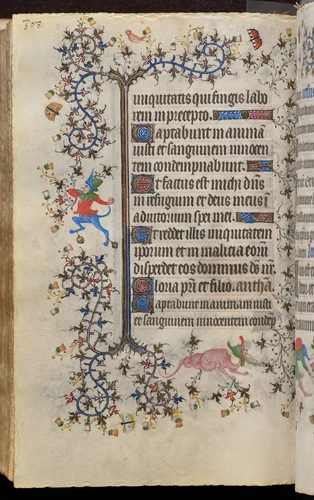 iniquitatis qui fingis labo
rem in precepto.
Captabunt in animā
iusti et sanguinem innocen
tem condempnabunt.
Et factus est michi dn̄s
in refugium et deus meus ī
adiutorium spei mee.
Et reddet illis iniquitatem
ipsorum et in malicia eorū
disperdet eos dominus ds̄ nr̄
Gloria pr̄i et filio. anthā.
Captabunt in animam iusti
et sanguinem innocentem condep̄